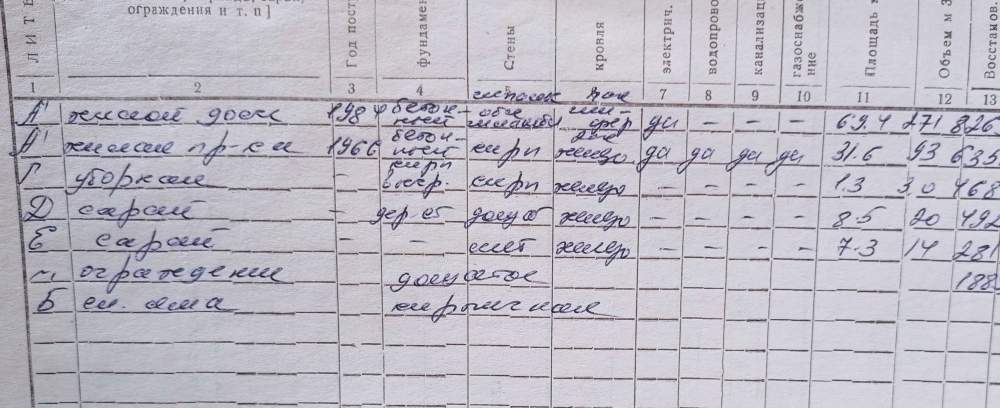 ЛИТЕ
ограждения и т. п]
Год пост
фундамен
Стены
кровля
электрич.
водопрово
канализац
газоснабже
ние
Площадь
Объем м 3
Восстанов.
1 2 3 4 7 8 9 10 11 12 13
А жилой дом 198 бетон- да – – – 69.4 271 826
А' жилая пр-ка 1966 бетон- кирп железо да да да да 31.6 93 635
Г уборная – кирп железо – – – – 1.3 3.0 468
Д сарай – дер. ст дощат железо – – – – 8.5 20 492
Е сарай – – железо – – – – 7.3 14 281
ограждение дощатое 188
Б сл. яма кирпичная